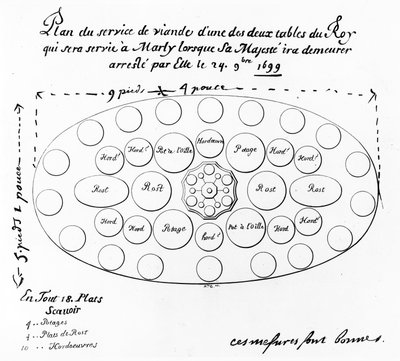 Plan du service de viande d'une des deux tables du Roy
qui sera servie à Marly lorsque Sa Majesté ira demeurer
arresté par Elle le 24. 9bre 1699
9 pieds X 4 pouce
Hord' Hord' Pot à l'oille Hordœuvre Potage Hord' Hord'
Rost Rost Rost Rost
Hord Hord Potage hord' Pot à l'oille Hord Hord'
5. pieds 2 pouce
En Tout 18. Plats
Scavoir
4 .. Potages
4 .. Plats de Rost
10 .. Hordœuvres
ces mesures sont bonnes.